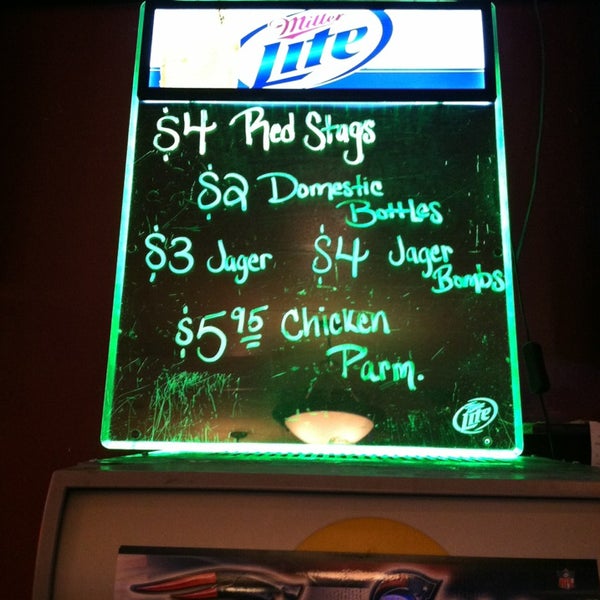 Miller
Lite
$4 Red Stags
$2 Domestic
Bottles
$3 Jager $4 Jager
Bombs
$5.95 Chicken
Parm.
Lite
NFL